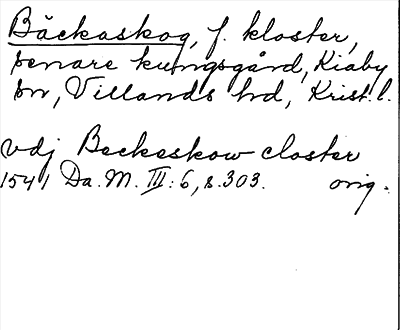 Bäckaskog, f. kloster,
senare kungsgård, Kiaby
sn, Villands hd, Krist. l.
vdj Beckeskow closter
1541 Da. M. III: 6, s. 303. orig.